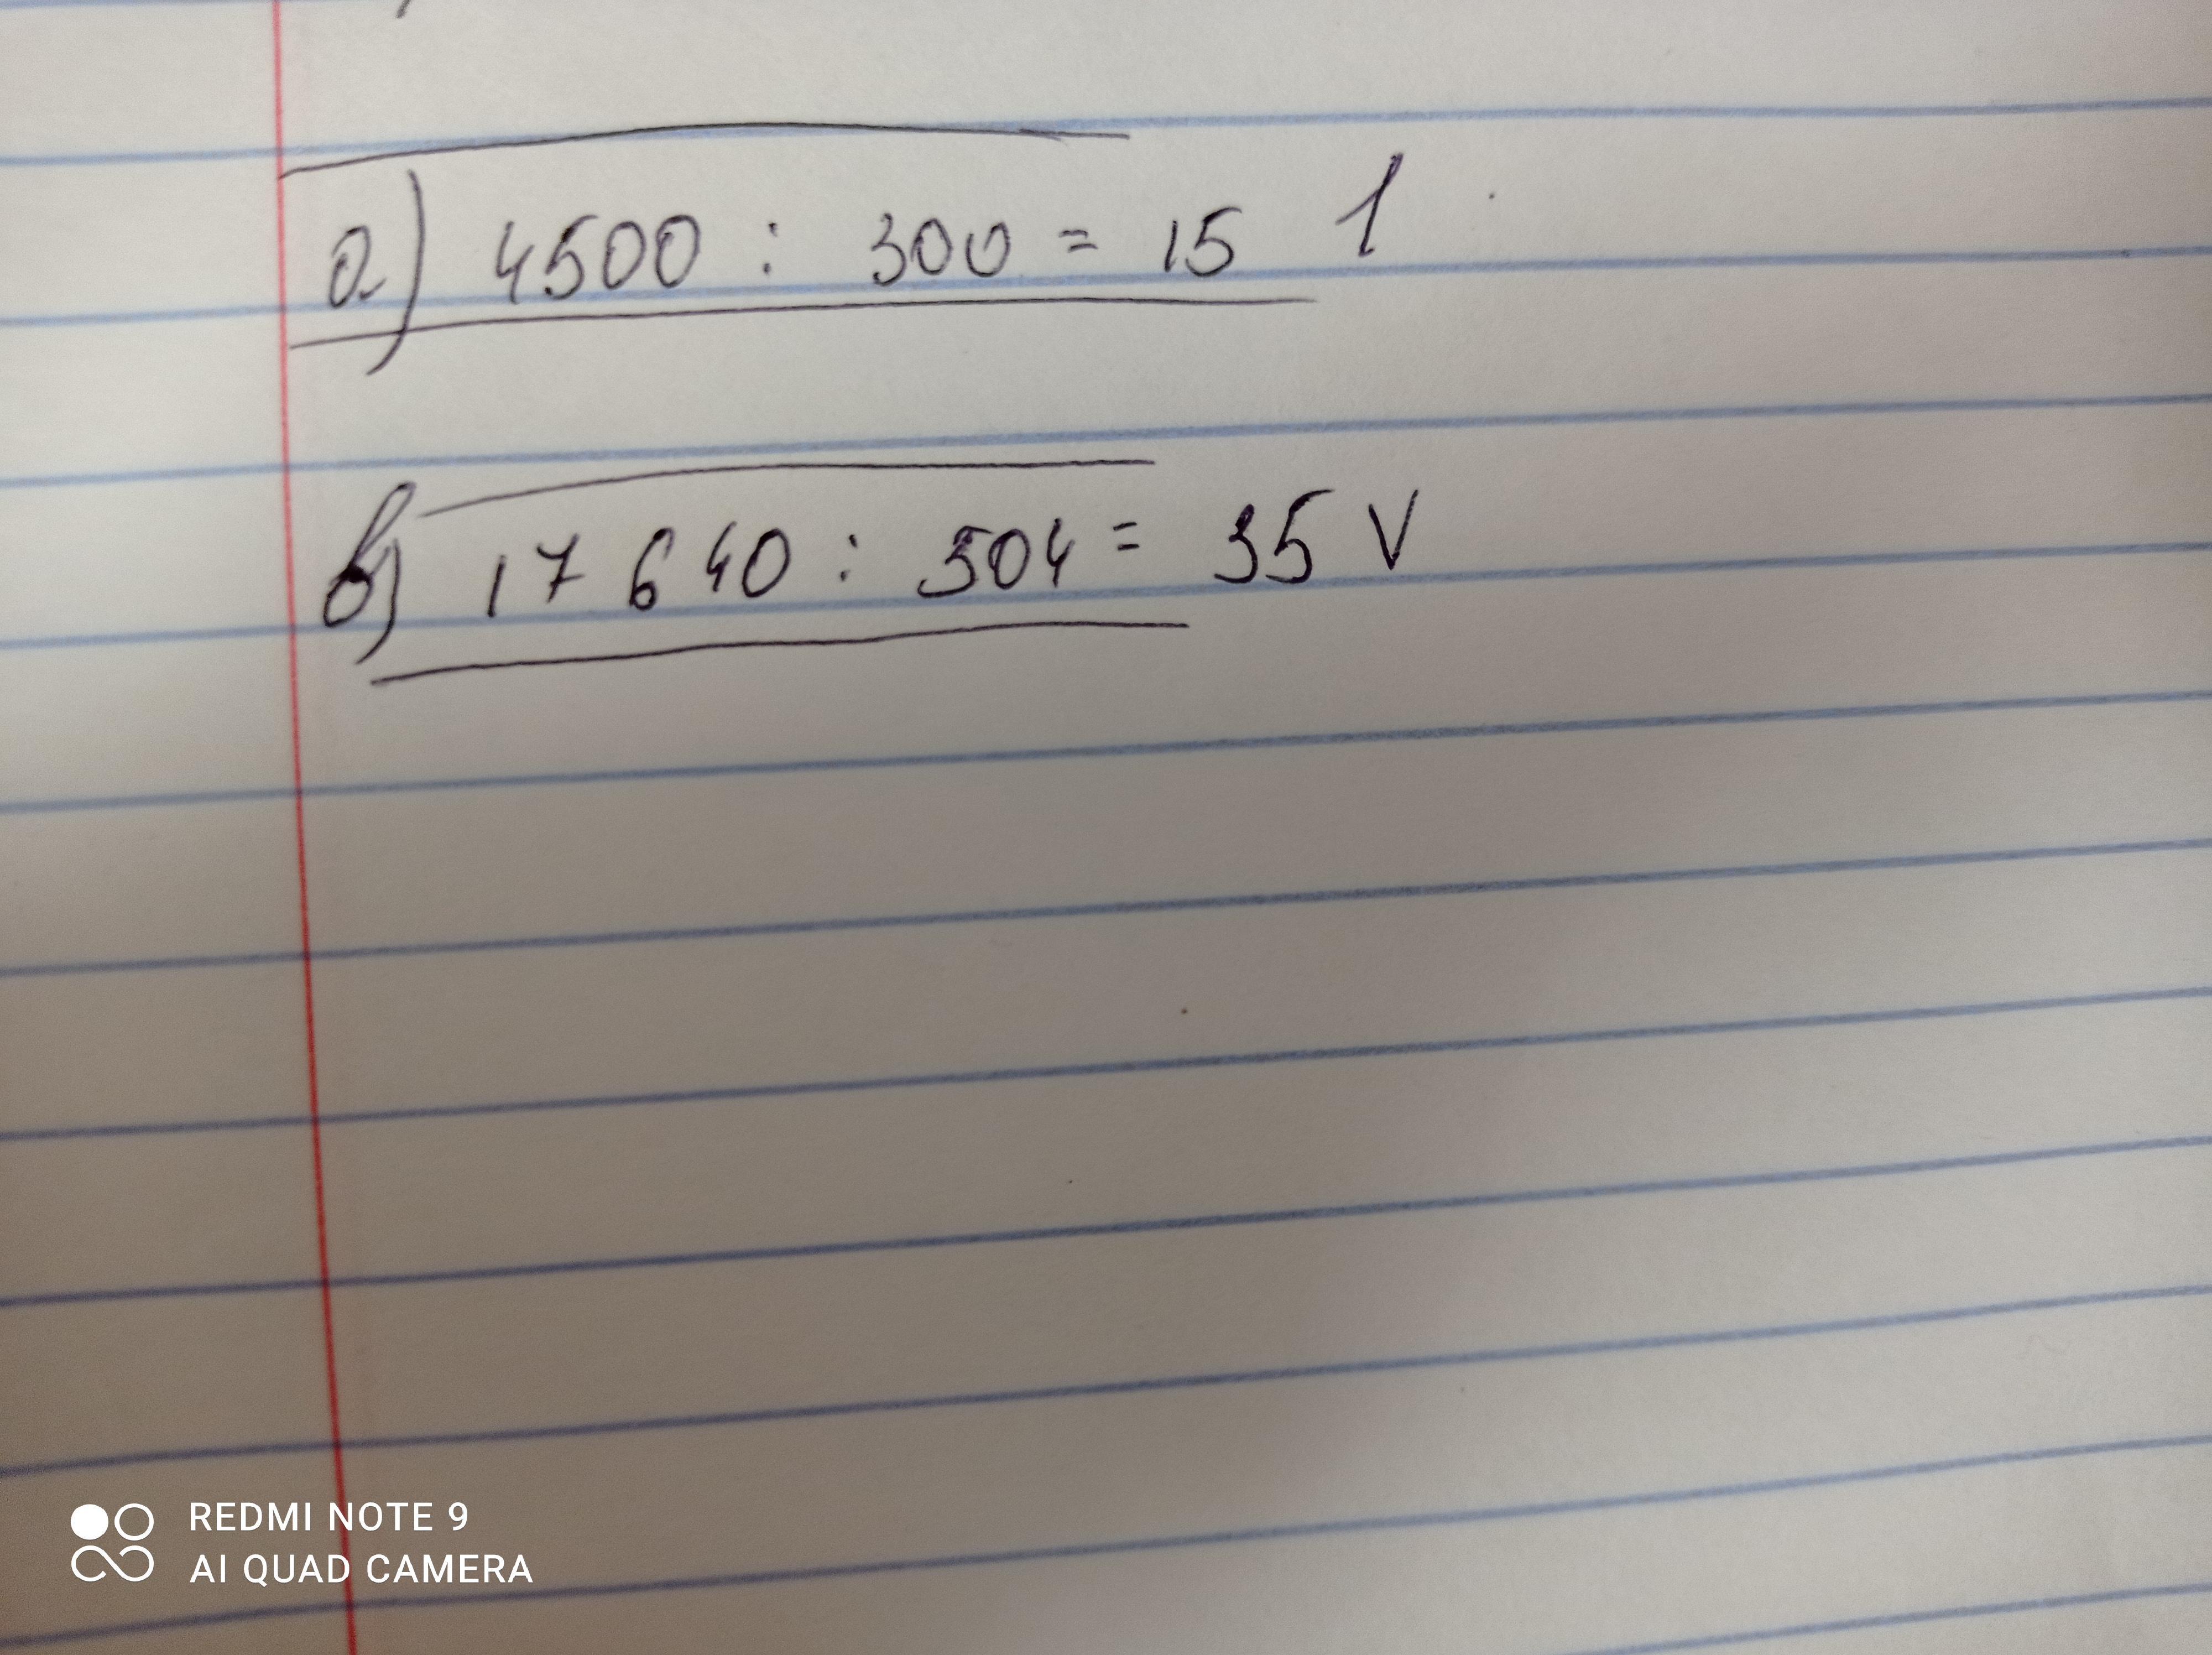 а) 4500 : 300 = 15
в) 17 640 : 504 = 35 V
REDMI NOTE 9
AI QUAD CAMERA